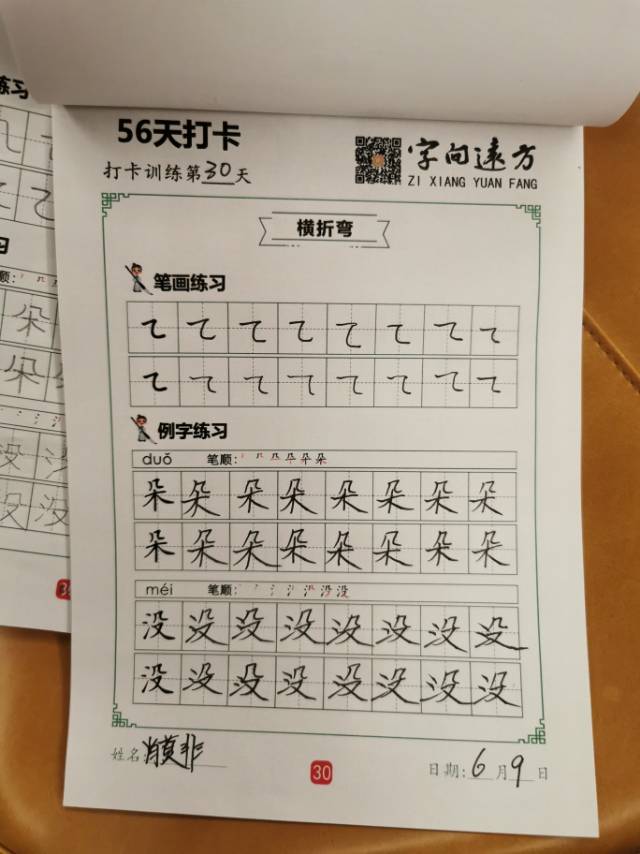 56天打卡
字向远方
打卡训练第30天
ZI XIANG YUAN FANG
横折弯
笔画练习
例字练习
duǒ 笔顺:
朵 朵 朵 朵 朵 朵 朵 朵
朵 朵 朵 朵 朵 朵 朵 朵
méi 笔顺:
没 没 没 没 没 没 没 没
没 没 没 没 没 没 没 没
姓名 日期: 6月9日
30
练习